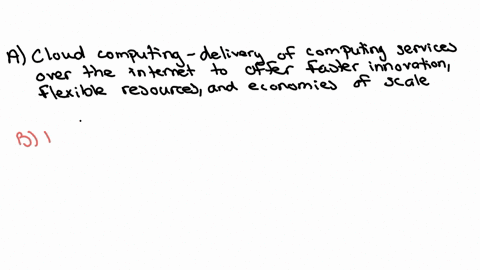 A) Cloud computing - delivery of computing services
over the internet to offer faster innovation,
flexible resources, and economies of scale
B) I